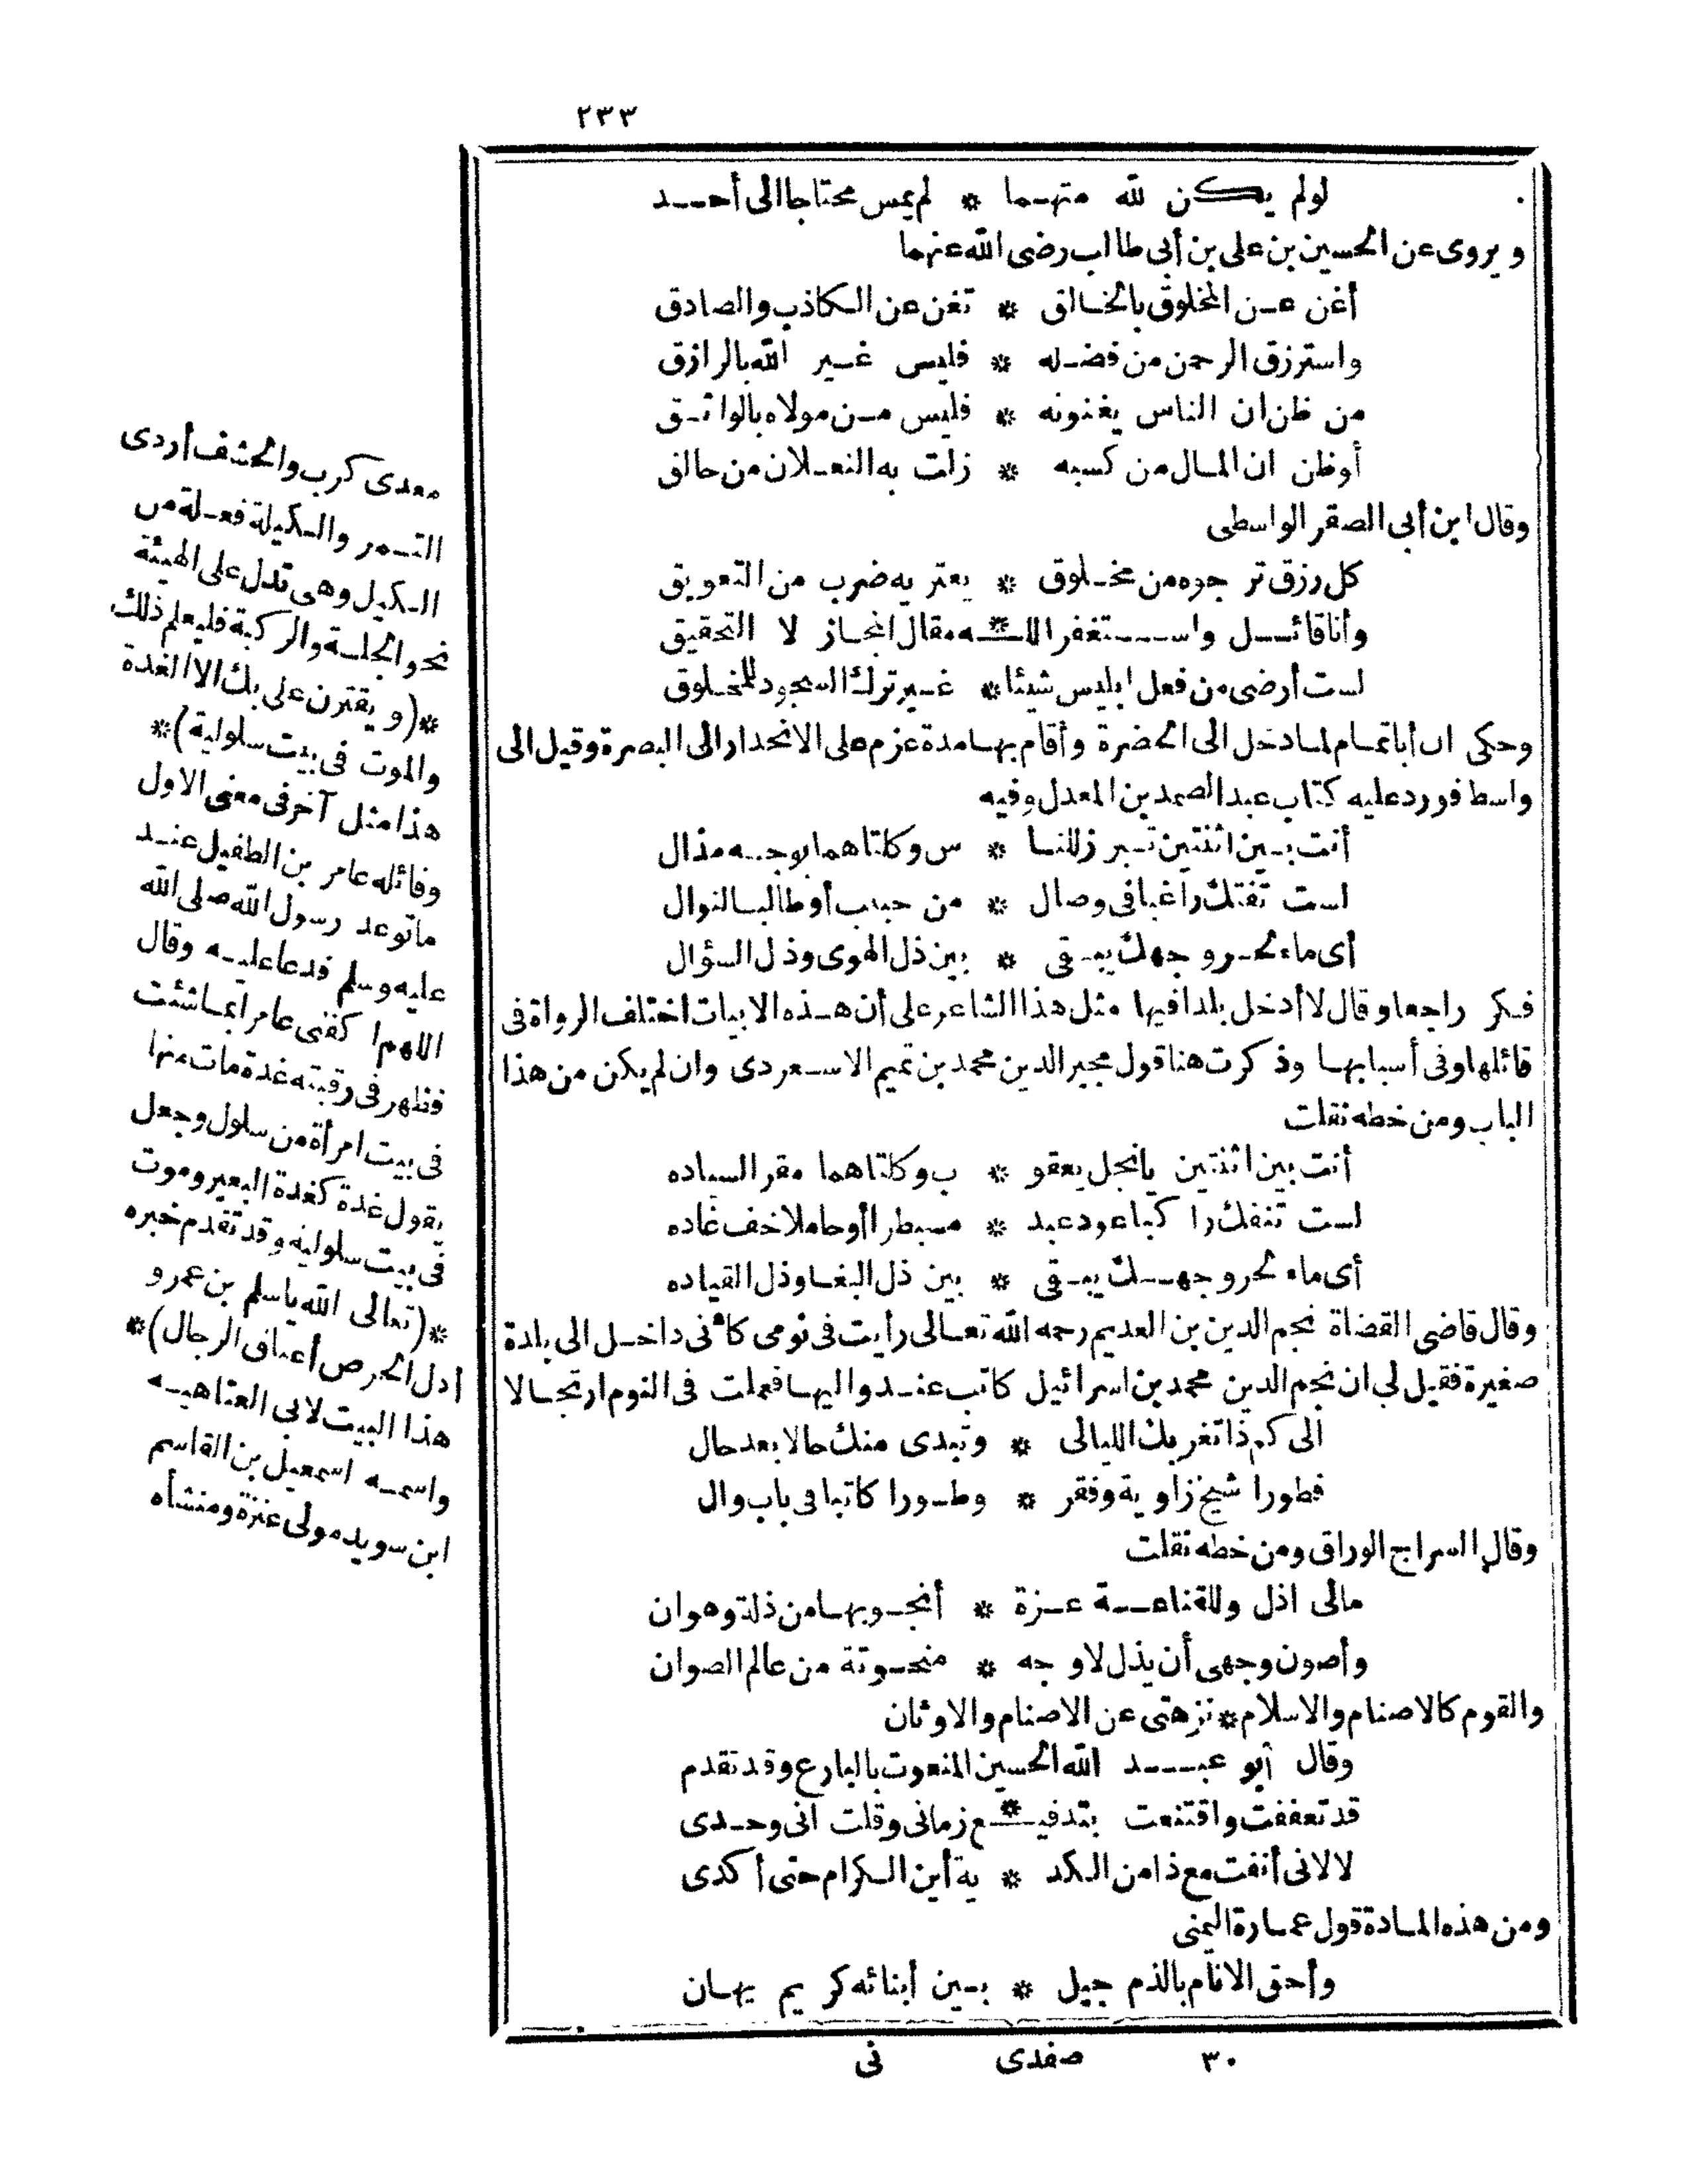 ٢٣٣
لولم يكن لله متهما * لم يمس محتاجا الى أحد
ويروى عن الحسين بن على بن أبى طالب رضى الله عنهما
أغن عن المخلوق بالخالق * تغن عن الكاذب والصادق
واسترزق الرحمن من فضله * فليس غير الله بالرازق
من ظن ان الناس يغنونه * فليس من مولاه بالواثق
أوظن ان المال من كسبه * زلت به النعلان من حالق
وقال ابن أبى الصقر الواسطى
كل رزق ترجوه من مخلوق * يعتريه ضرب من التعويق
وأنا قائل واستغفر الله * مقال المجاز لا التحقيق
لست أرضى من فعل ابليس شيئا * غير ترك السجود للمخلوق
وحكى ان أباتمام لما دخل الى الحضرة وأقام بها مدة عزم على الانحدار الى البصرة وقيل الى
واسط فورد عليه كتاب عبد الصمد بن المعدل وفيه
أنت بين اثنتين تبرز للنا * س وكلتاهما بوجه مذال
لست تنفك راغبا فى وصال * من حبيب أوطالبا لنوال
أى ماء لحر وجهك يبقى * بين ذل الهوى وذل السؤال
فكر راجعا وقال لا أدخل بلدا فيها مثل هذا الشاعر على أن هذه الابيات اختلف الرواة فى
قائلها وفى أسبابها وذكرت هنا قول مجير الدين محمد بن تميم الاسعردى وان لم يكن من هذا
الباب ومن خطه نقلت
أنت بين اثنتين يانجل يعقو * ب وكلتاهما مقر السياده
لست تنفك راكبا عود عبد * مسبطرا أوحاملا خف غاده
أى ماء لحر وجهك يبقى * بين ذل البغا وذل القياده
وقال قاضى القضاة نجم الدين بن العديم رحمه الله تعالى رأيت فى نومى كأنى داخل الى بلدة
صغيرة فقيل لى ان نجم الدين محمد بن اسرائيل كاتب عند واليها فعملت فى النوم ارتجالا
الى كم ذا تغربك الليالى * وتبدى منك حالا بعد حال
فطورا شيخ زاوية وفقر * وطورا كاتبا فى باب وال
وقال السراج الوراق ومن خطه نقلت
مالى اذل وللقناعة عزة * أنجو بها من ذلة وهوان
وأصون وجهى أن يذل لاوجه * منحوتة من عالم الصوان
والقوم كالاصنام والاسلام * نزهتى عن الاصنام والاوثان
وقال أبو عبد الله الحسين المنعوت بالبارع وقد تقدم
قد تعففت واقتنعت بتدفيـ * ـع زمانى وقلت انى وحدى
لا لانى أنفت مع ذا من الكد * ية أين الكرام حتى أكدى
ومن هذه المادة قول عمارة اليمنى
وأحق الانام بالذم جيل * بين أبنائه كريم يهان
٣٠ صفدى نى
معدى كرب والحشف أردى
التمر والكيلة فعلة من
الكيل وهى تدل على الهيئة
نحو الجلسة والركبة فليعلم ذلك
*(ويقترن على بك الا الغدة
والموت فى بيت سلولية)*
هذا مثل آخر فى معنى الاول
وقائله عامر بن الطفيل عند
ماتوعد رسول الله صلى الله
عليه وسلم فدعا عليه وقال
اللهم اكفنى عامرا بماشئت
فظهر فى رقبته غدة مات منها
فى بيت امرأة من سلول وجعل
يقول غدة كغدة البعير وموت
فى بيت سلولية وقد تقدم خبره
*(تعالى الله ياسلم بن عمرو
أذل الحرص أعناق الرجال)*
هذا البيت لابى العتاهيه
واسمه اسمعيل بن القاسم
ابن سويد مولى عنزة ومنشأه